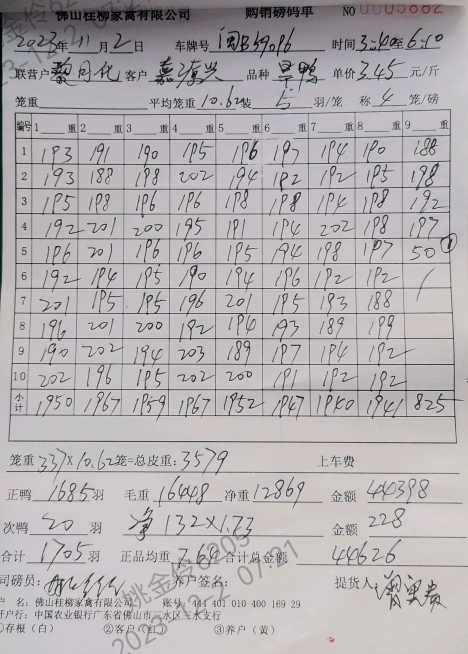 佛山桂柳家禽有限公司 购销磅码单 NO 0005882
2023年11月2日 车牌号 闽 时间 3:40至6:10
联营户 客户 嘉 兴 品种 旱鸭 单价 3.45 元/斤
笼重 平均笼重 10.62 装 5 羽/笼 称 4 笼/磅
编号 1 重 2 重 3 重 4 重 5 重 6 重 7 重 8 重 9 重
1 193 191 190 195 196 197 194 190 188
2 193 188 198 202 194 192 192 195 198
3 195 198 196 196 198 198 194 198 192
4 192 201 200 195 191 194 202 198 197
5 196 201 196 196 195 194 198 197 50 ①
6 192 194 195 190 194 196 192 192
7 201 195 195 196 201 195 193 188
8 196 201 200 192 194 193 189 199
9 190 202 194 203 189 197 194 192
10 202 196 195 202 200 191 192 192
小计 1950 1967 1959 1967 1952 1947 1940 1941 825
笼重 337×10.62笼=总皮重:3579 上车费
正鸭 1685 羽 毛重 16448 净重 12869 金额 44398
次鸭 20 羽 净 132×1.73 金额 228
合计 1705 羽 正品均重 7.64 合计总金额 44626
司磅员: 养户签名: 提货人:
户 名:佛山桂柳家禽有限公司 账号 444 401 010 400 169 29
开户行:中国农业银行广东省佛山市三水区三水支行
①存根(白) ②客户(红) ③养户(黄)
姚金伶6205
2023-12-2 07:21